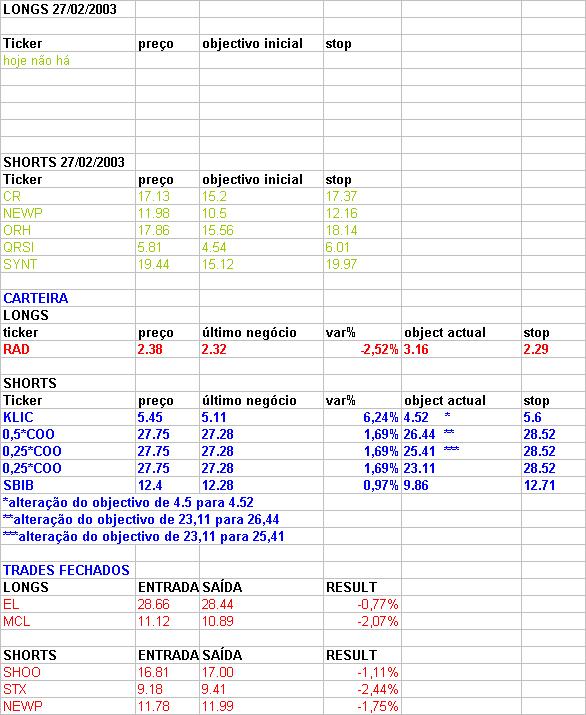 LONGS 27/02/2003
Ticker preço objectivo inicial stop
hoje não há
SHORTS 27/02/2003
Ticker preço objectivo inicial stop
CR 17.13 15.2 17.37
NEWP 11.98 10.5 12.16
ORH 17.86 15.56 18.14
QRSI 5.81 4.54 6.01
SYNT 19.44 15.12 19.97
CARTEIRA
LONGS
ticker preço último negócio var% object actual stop
RAD 2.38 2.32 -2,52% 3.16 2.29
SHORTS
Ticker preço último negócio var% object actual stop
KLIC 5.45 5.11 6,24% 4.52 * 5.6
0,5*COO 27.75 27.28 1,69% 26.44 ** 28.52
0,25*COO 27.75 27.28 1,69% 25.41 *** 28.52
0,25*COO 27.75 27.28 1,69% 23.11 28.52
SBIB 12.4 12.28 0,97% 9.86 12.71
*alteração do objectivo de 4.5 para 4.52
**alteração do objectivo de 23,11 para 26,44
***alteração do objectivo de 23,11 para 25,41
TRADES FECHADOS
LONGS ENTRADA SAÍDA RESULT
EL 28.66 28.44 -0,77%
MCL 11.12 10.89 -2,07%
SHORTS ENTRADA SAÍDA RESULT
SHOO 16.81 17.00 -1,11%
STX 9.18 9.41 -2,44%
NEWP 11.78 11.99 -1,75%